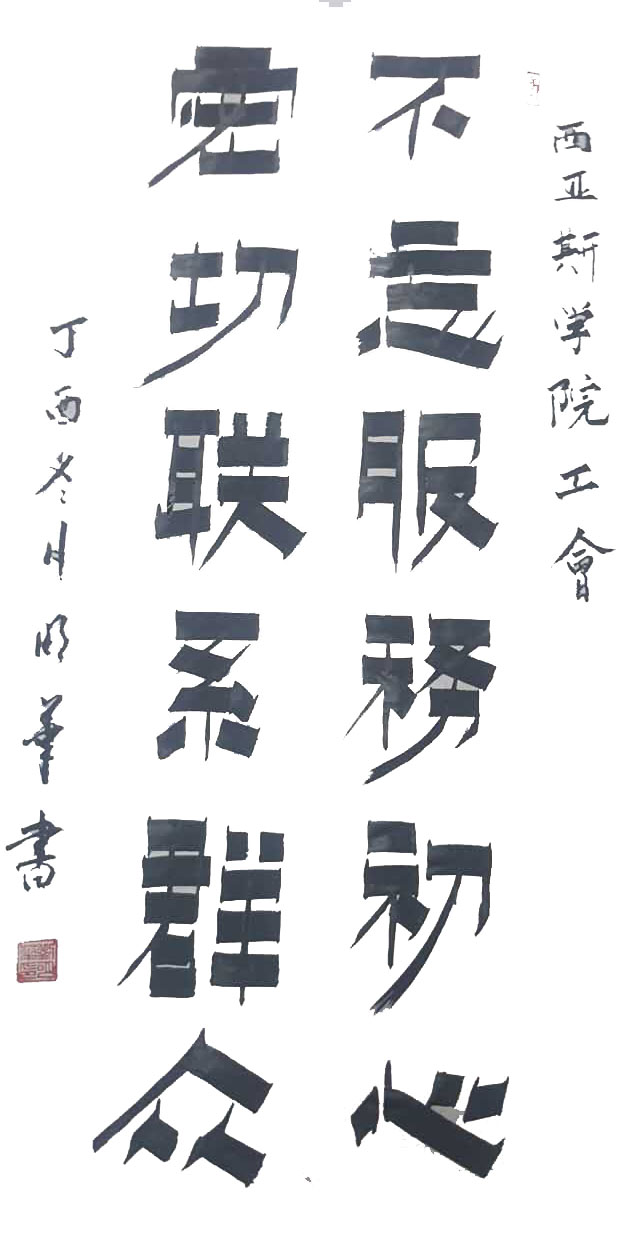 西亚斯学院工會
不忘服務初心
密切联系群众
丁酉冬月明華書